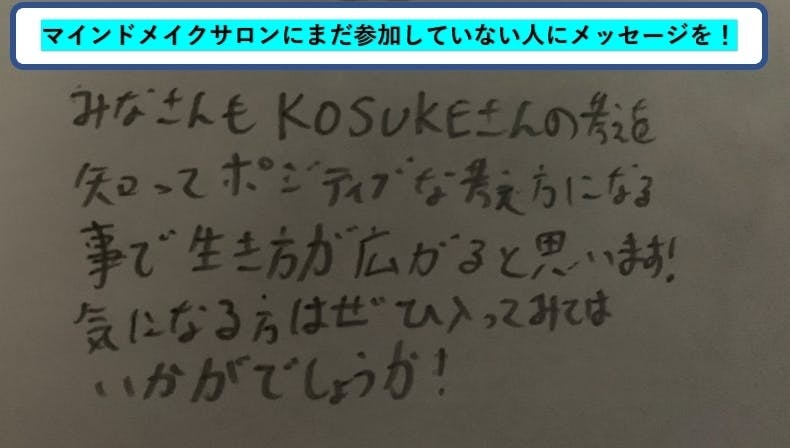 マインドメイクサロンにまだ参加していない人にメッセージを！
みなさんも KOSUKEさんの考えを
知って ポジティブな考え方になる
事で生き方が広がると思います!
気になる方はぜひ入ってみては
いかがでしょうか!